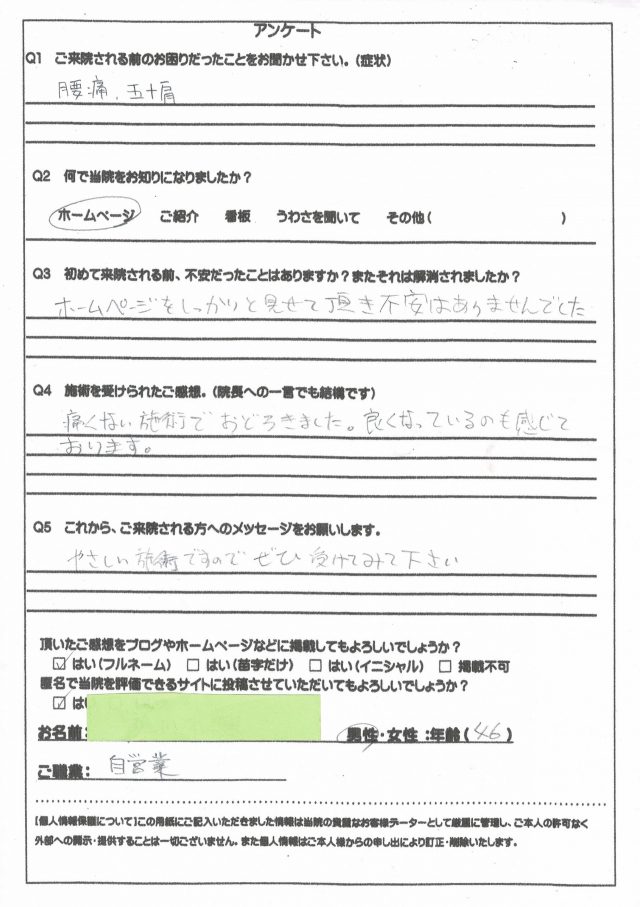 アンケート
Q1 ご来院される前のお困りだったことをお聞かせ下さい。(症状)
腰痛、五十肩
Q2 何で当院をお知りになりましたか?
ホームページ ご紹介 看板 うわさを聞いて その他( )
Q3 初めて来院される前、不安だったことはありますか?またそれは解消されましたか?
ホームページをしっかりと見せて頂き不安はありませんでした
Q4 施術を受けられたご感想。(院長への一言でも結構です)
痛くない施術でおどろきました。良くなっているのも感じて
おります。
Q5 これから、ご来院される方へのメッセージをお願いします。
やさしい施術ですのでぜひ受けてみて下さい
頂いたご感想をブログやホームページなどに掲載してもよろしいでしょうか?
☑ はい(フルネーム) □ はい(苗字だけ) □ はい(イニシャル) □ 掲載不可
匿名で当院を評価できるサイトに投稿させていただいてもよろしいでしょうか?
☑ はい
お名前: 男性・女性 :年齢(46)
ご職業: 自営業
【個人情報保護について】この用紙にご記入いただきました情報は当院の貴重なお客様データーとして厳重に管理し、ご本人の許可なく
外部への開示・提供することは一切ございません。また個人情報はご本人様からの申し出により訂正・削除いたします。